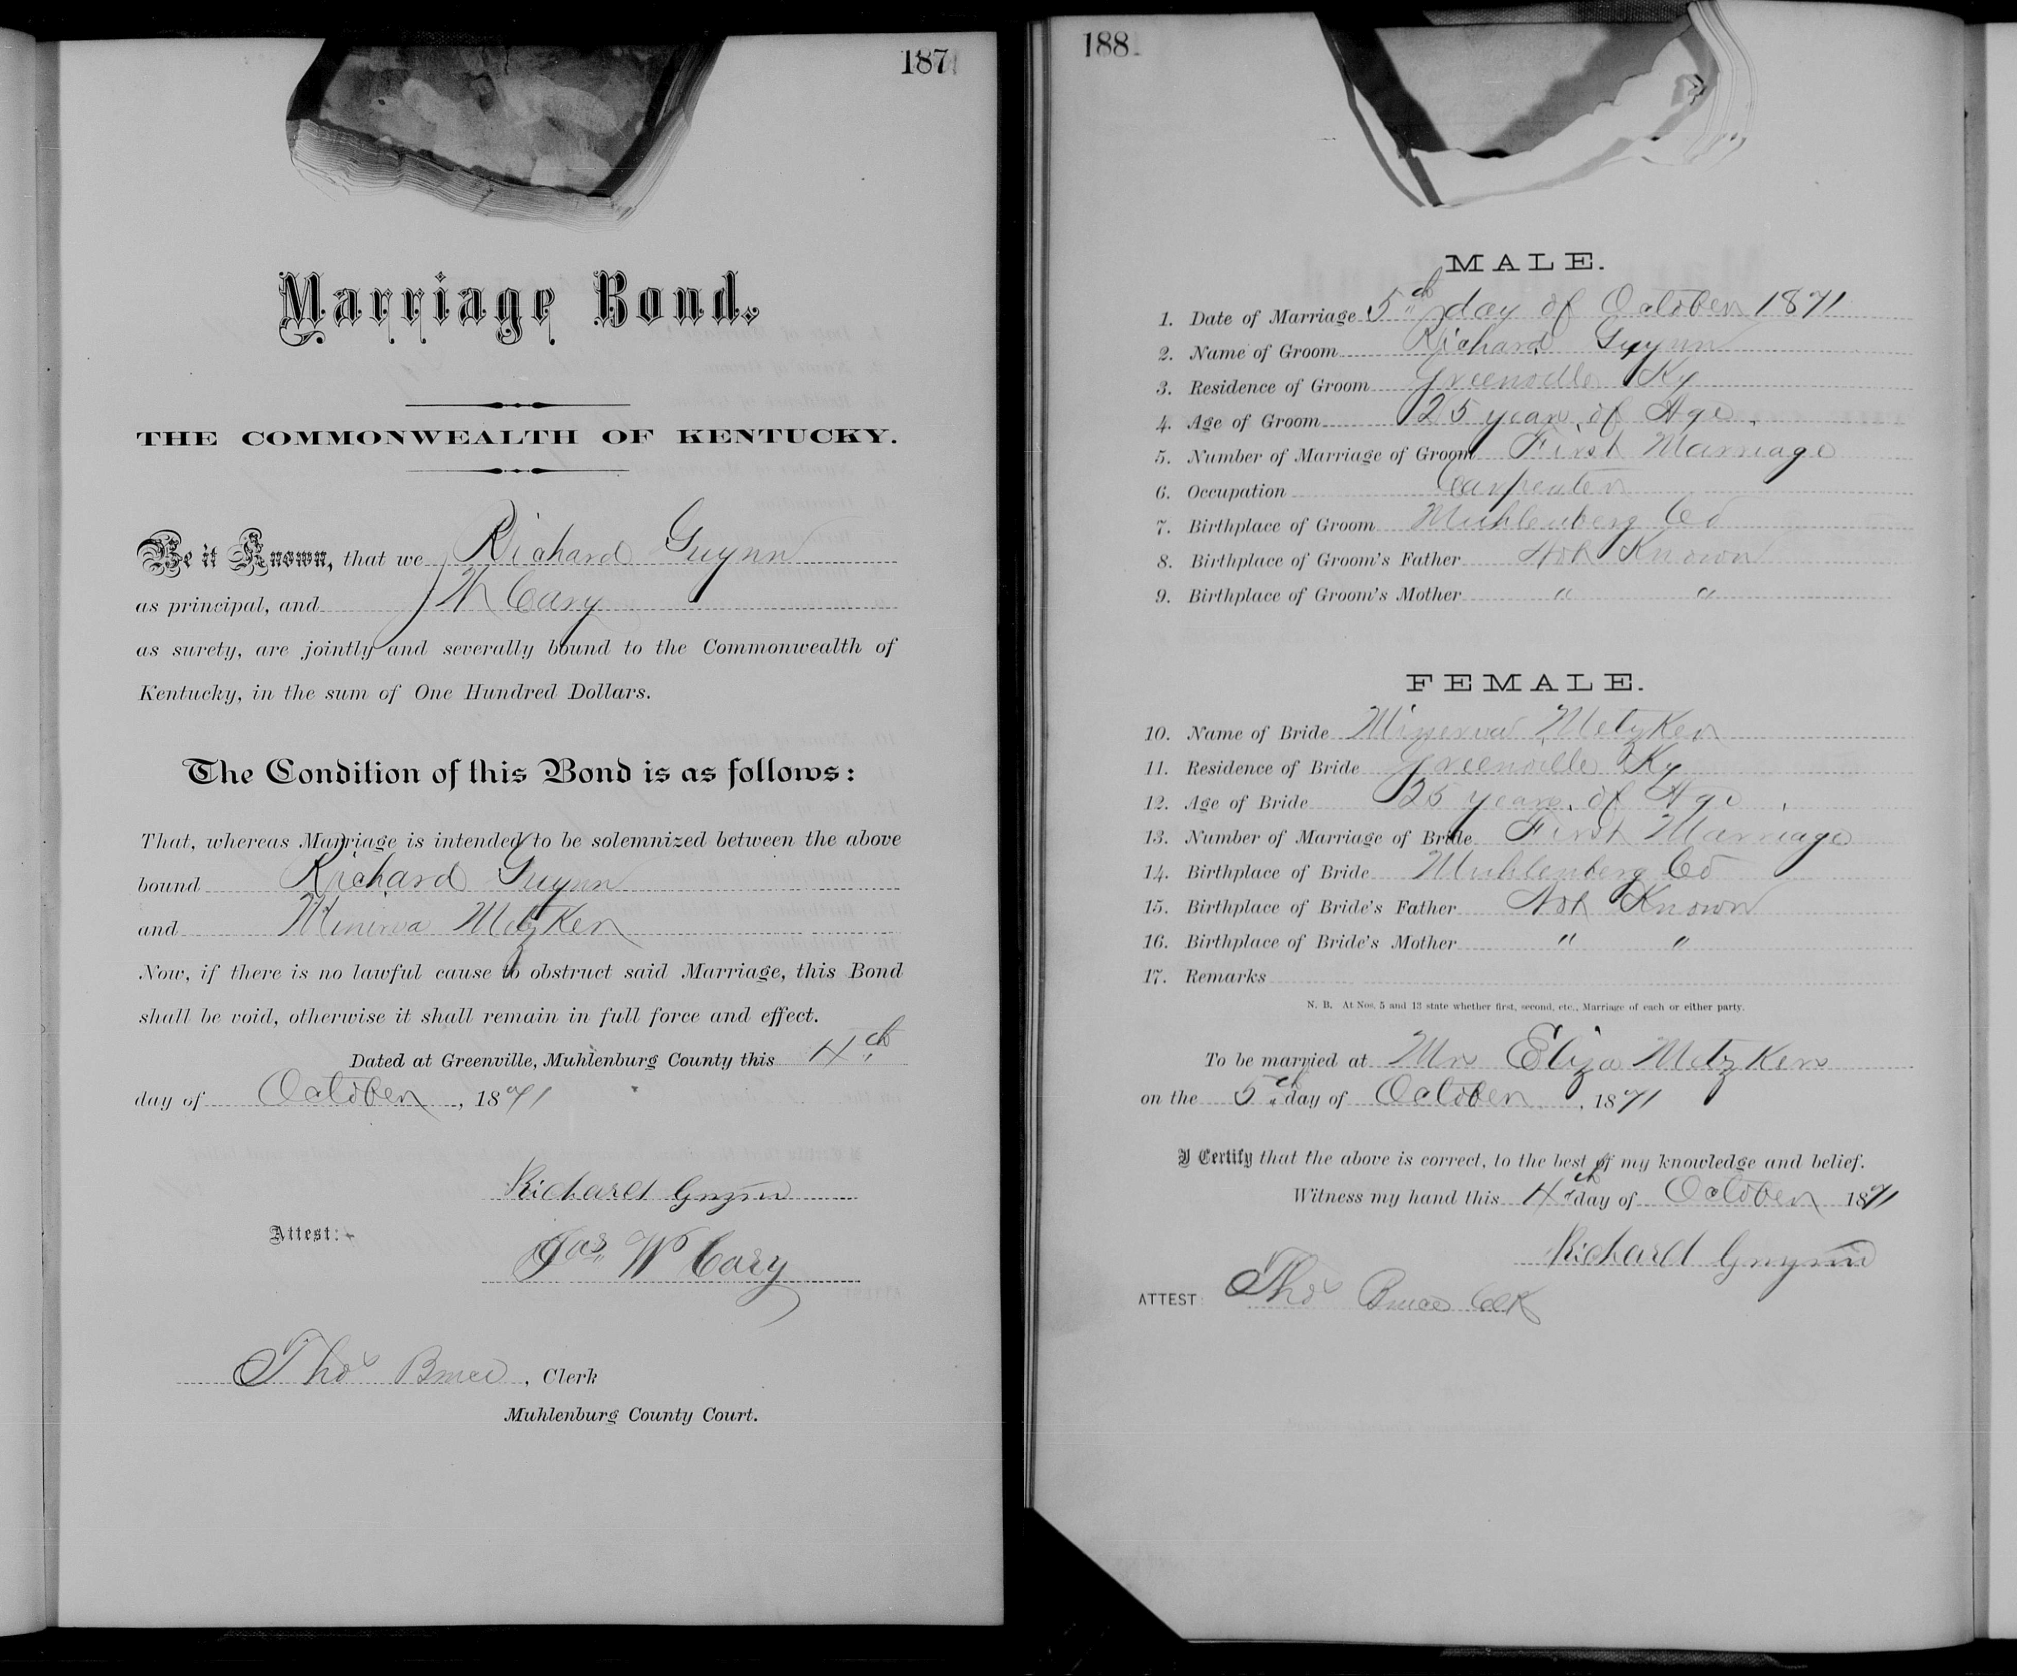 187
Marriage Bond.
THE COMMONWEALTH OF KENTUCKY.
Be it Known, that we Richard Guynn
as principal, and J W Cary
as surety, are jointly and severally bound to the Commonwealth of
Kentucky, in the sum of One Hundred Dollars.
The Condition of this Bond is as follows:
That, whereas Marriage is intended to be solemnized between the above
bound Richard Guynn
and Minerva Metzker
Now, if there is no lawful cause to obstruct said Marriage, this Bond
shall be void, otherwise it shall remain in full force and effect.
Dated at Greenville, Muhlenburg County this 4th
day of October, 1871
Richard Gwynn
Attest:
Jas W Cary
Thos Bruce, Clerk
Muhlenburg County Court.
188
MALE.
1. Date of Marriage 5th day of October 1871
2. Name of Groom Richard Guynn
3. Residence of Groom Greenville Ky
4. Age of Groom 25 years of Age
5. Number of Marriage of Groom First Marriage
6. Occupation Carpenter
7. Birthplace of Groom Muhlenberg Co
8. Birthplace of Groom's Father Not Known
9. Birthplace of Groom's Mother " "
FEMALE.
10. Name of Bride Minerva Metzker
11. Residence of Bride Greenville Ky
12. Age of Bride 25 years of Age
13. Number of Marriage of Bride First Marriage
14. Birthplace of Bride Muhlenberg Co
15. Birthplace of Bride's Father Not Known
16. Birthplace of Bride's Mother " "
17. Remarks
N. B. At Nos. 5 and 13 state whether first, second, etc., Marriage of each or either party.
To be married at Mrs Eliza Metzkers
on the 5th day of October, 1871
I Certify that the above is correct, to the best of my knowledge and belief.
Witness my hand this 4th day of October 1871
Richard Gwynn
ATTEST: Thos Bruce Clk